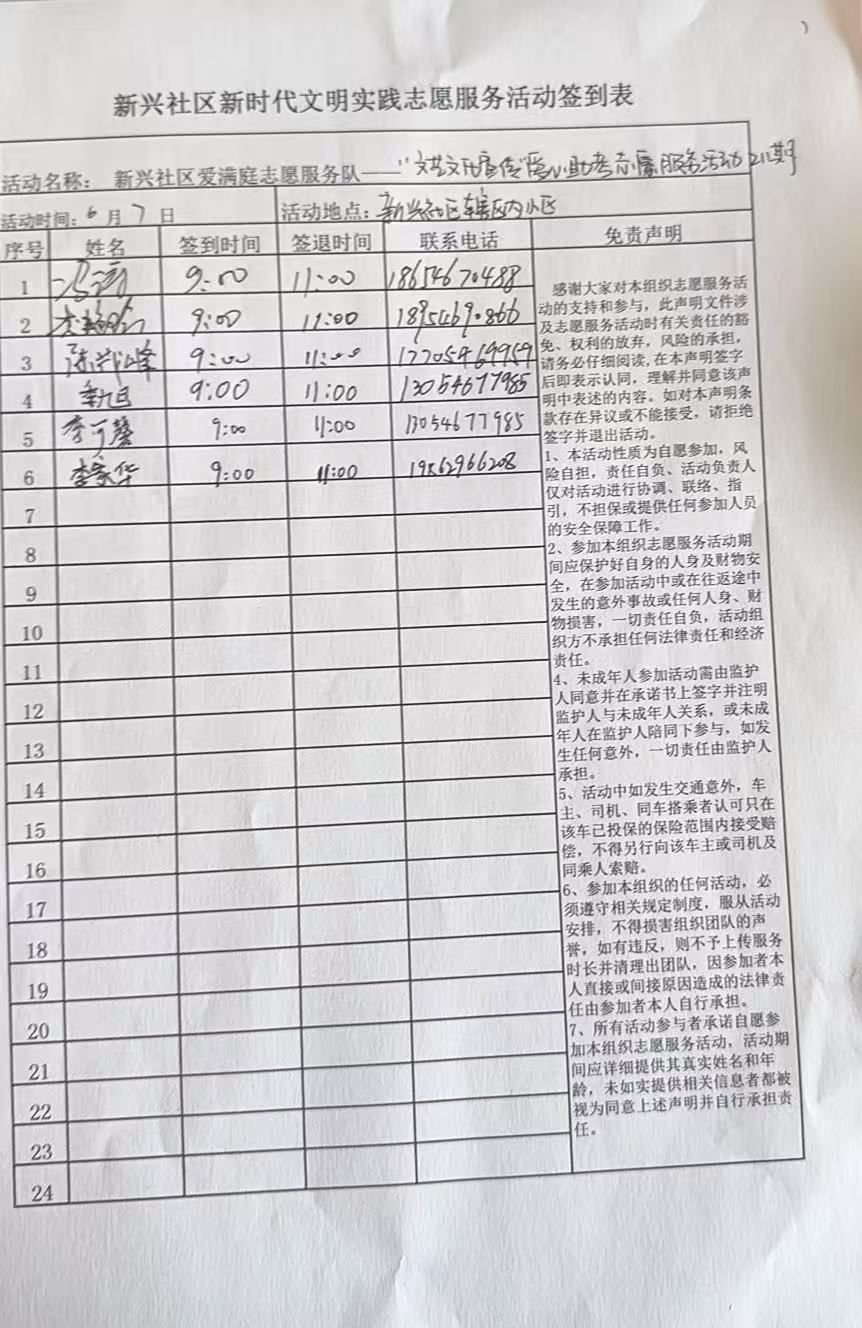 新兴社区新时代文明实践志愿服务活动签到表
活动名称： 新兴社区爱满庭志愿服务队——"文艺文化宣传暨助考志愿服务活动211期
活动时间：6月7日 活动地点：新兴社区辖区内小区
序号 姓名 签到时间 签退时间 联系电话 免责声明
1 9:00 11:00 18654670488
2 9:00 11:00 1895469.866
3 9:00 11:00 17705469959
4 9:00 11:00 13054677985
5 李可馨 9:00 11:00 13054677985
6 李家华 9:00 11:00 19562966208
7
8
9
10
11
12
13
14
15
16
17
18
19
20
21
22
23
24
感谢大家对本组织志愿服务活
动的支持和参与，此声明文件涉
及志愿服务活动时有关责任的豁
免、权利的放弃，风险的承担，
请务必仔细阅读,在本声明签字
后即表示认同，理解并同意该声
明中表述的内容。如对本声明条
款存在异议或不能接受，请拒绝
签字并退出活动。
1、本活动性质为自愿参加，风
险自担，责任自负、活动负责人
仅对活动进行协调、联络、指
引，不担保或提供任何参加人员
的安全保障工作。
2、参加本组织志愿服务活动期
间应保护好自身的人身及财物安
全，在参加活动中或在往返途中
发生的意外事故或任何人身、财
物损害，一切责任自负，活动组
织方不承担任何法律责任和经济
责任。
4、未成年人参加活动需由监护
人同意并在承诺书上签字并注明
监护人与未成年人关系，或未成
年人在监护人陪同下参与，如发
生任何意外，一切责任由监护人
承担。
5、活动中如发生交通意外，车
主、司机、同车搭乘者认可只在
该车已投保的保险范围内接受赔
偿，不得另行向该车主或司机及
同乘人索赔。
6、参加本组织的任何活动，必
须遵守相关规定制度，服从活动
安排，不得损害组织团队的声
誉，如有违反，则不予上传服务
时长并清理出团队，因参加者本
人直接或间接原因造成的法律责
任由参加者本人自行承担。
7、所有活动参与者承诺自愿参
加本组织志愿服务活动，活动期
间应详细提供其真实姓名和年
龄，未如实提供相关信息者都被
视为同意上述声明并自行承担责
任。